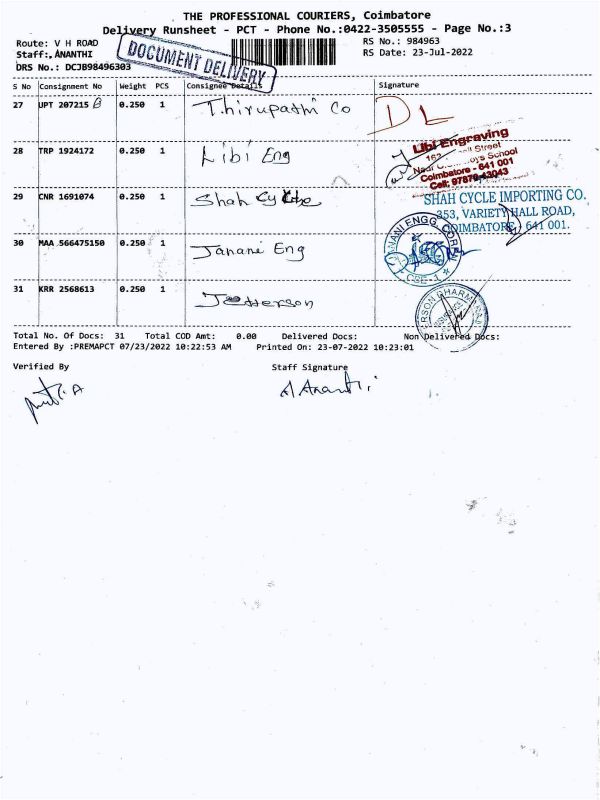 THE PROFESSIONAL COURIERS, Coimbatore
Delivery Runsheet - PCT - Phone No.:0422-3505555 - Page No.:3
Route: V H ROAD
RS No.: 984963
Staff: ANANTHI
RS Date: 23-Jul-2022
DRS No.: DCJB98496303
DOCUMENT DELIVERY
S No Consignment No Weight PCS Consignee Details Signature
27 UPT 207215 B 0.250 1 Thirupathi Co DL
28 TRP 1924172 0.250 1 Libi Eng
Libi Engraving
Street
School
Coimbatore - 641 001
Cell: 97870 43043
29 CNR 1691074 0.250 1 Shah Cycle
SHAH CYCLE IMPORTING CO.
353, VARIETY HALL ROAD,
COIMBATORE - 641 001.
30 MAA 566475150 0.250 1 Janani Eng
JANANI ENGG. CORPN
CBE-1
31 KRR 2568613 0.250 1 Jefferson
Total No. Of Docs: 31 Total COD Amt: 0.00 Delivered Docs: Non Delivered Docs:
Entered By :PREMAPCT 07/23/2022 10:22:53 AM Printed On: 23-07-2022 10:23:01
Verified By Staff Signature
A Ananthi